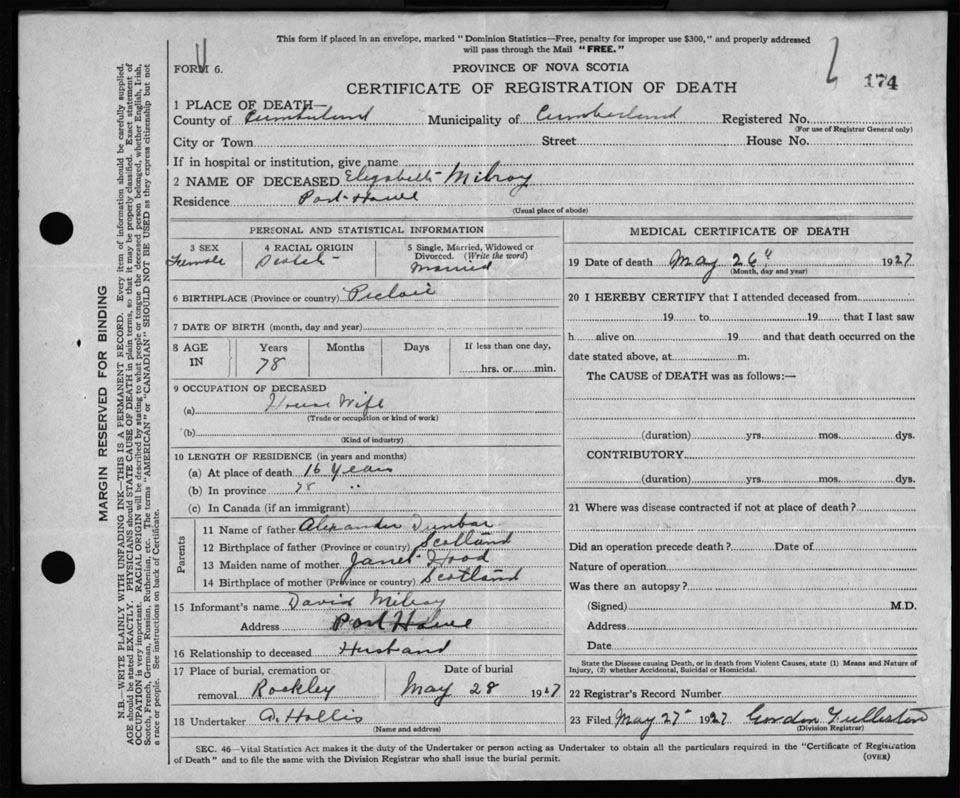 This form if placed in an envelope, marked "Dominion Statistics—Free, penalty for improper use $300," and properly addressed
will pass through the Mail "FREE."
FORM 6.
PROVINCE OF NOVA SCOTIA
174
CERTIFICATE OF REGISTRATION OF DEATH
1 PLACE OF DEATH—
County of Cumberland Municipality of Cumberland Registered No.
(For use of Registrar General only)
City or Town Street House No.
If in hospital or institution, give name
2 NAME OF DECEASED Elizabeth Milroy
Residence Port Howe
(Usual place of abode)
PERSONAL AND STATISTICAL INFORMATION
3 SEX 4 RACIAL ORIGIN 5 Single, Married, Widowed or
Divorced. (Write the word)
Female Scotch Married
6 BIRTHPLACE (Province or country) Pictou
7 DATE OF BIRTH (month, day and year)
8 AGE Years Months Days If less than one day,
IN 78 hrs. or min.
9 OCCUPATION OF DECEASED
(a) House Wife
(Trade or occupation or kind of work)
(b)
(Kind of industry)
10 LENGTH OF RESIDENCE (in years and months)
(a) At place of death 16 years
(b) In province 78 "
(c) In Canada (if an immigrant)
Parents
11 Name of father Alexander Dunbar
12 Birthplace of father (Province or country) Scotland
13 Maiden name of mother Janet Hood
14 Birthplace of mother (Province or country) Scotland
15 Informant's name David Milroy
Address Port Howe
16 Relationship to deceased Husband
17 Place of burial, cremation or Date of burial
removal Rockley May 28 1927
18 Undertaker A. Hollis
(Name and address)
MEDICAL CERTIFICATE OF DEATH
19 Date of death May 26" 1927
(Month, day and year)
20 I HEREBY CERTIFY that I attended deceased from
19 to 19 that I last saw
h alive on 19 and that death occurred on the
date stated above, at m.
The CAUSE of DEATH was as follows:—
(duration) yrs. mos. dys.
CONTRIBUTORY
(duration) yrs. mos. dys.
21 Where was disease contracted if not at place of death?
Did an operation precede death? Date of
Nature of operation
Was there an autopsy?
(Signed) M.D.
Address
Date
State the Disease causing Death, or in death from Violent Causes, state (1) Means and Nature of
Injury, (2) whether Accidental, Suicidal or Homicidal.
22 Registrar's Record Number
23 Filed May 27 1927 Gordon
(Division Registrar)
SEC. 46—Vital Statistics Act makes it the duty of the Undertaker or person acting as Undertaker to obtain all the particulars required in the "Certificate of Registration
of Death" and to file the same with the Division Registrar who shall issue the burial permit.
(OVER)
MARGIN RESERVED FOR BINDING
N.B.—WRITE PLAINLY WITH UNFADING INK—THIS IS A PERMANENT RECORD. Every item of information should be carefully supplied.
AGE should be stated EXACTLY. PHYSICIANS should STATE CAUSE OF DEATH in plain terms, so that it may be properly classified. Exact statement of
OCCUPATION is very important. RACIAL ORIGIN will be described by stating to what people or tongue the deceased person belonged, whether English, Irish,
Scotch, French, German, Russian, Ruthenian, etc. The terms "AMERICAN" or "CANADIAN" SHOULD NOT BE USED as they express citizenship but not
a race or people. See instructions on back of Certificate.